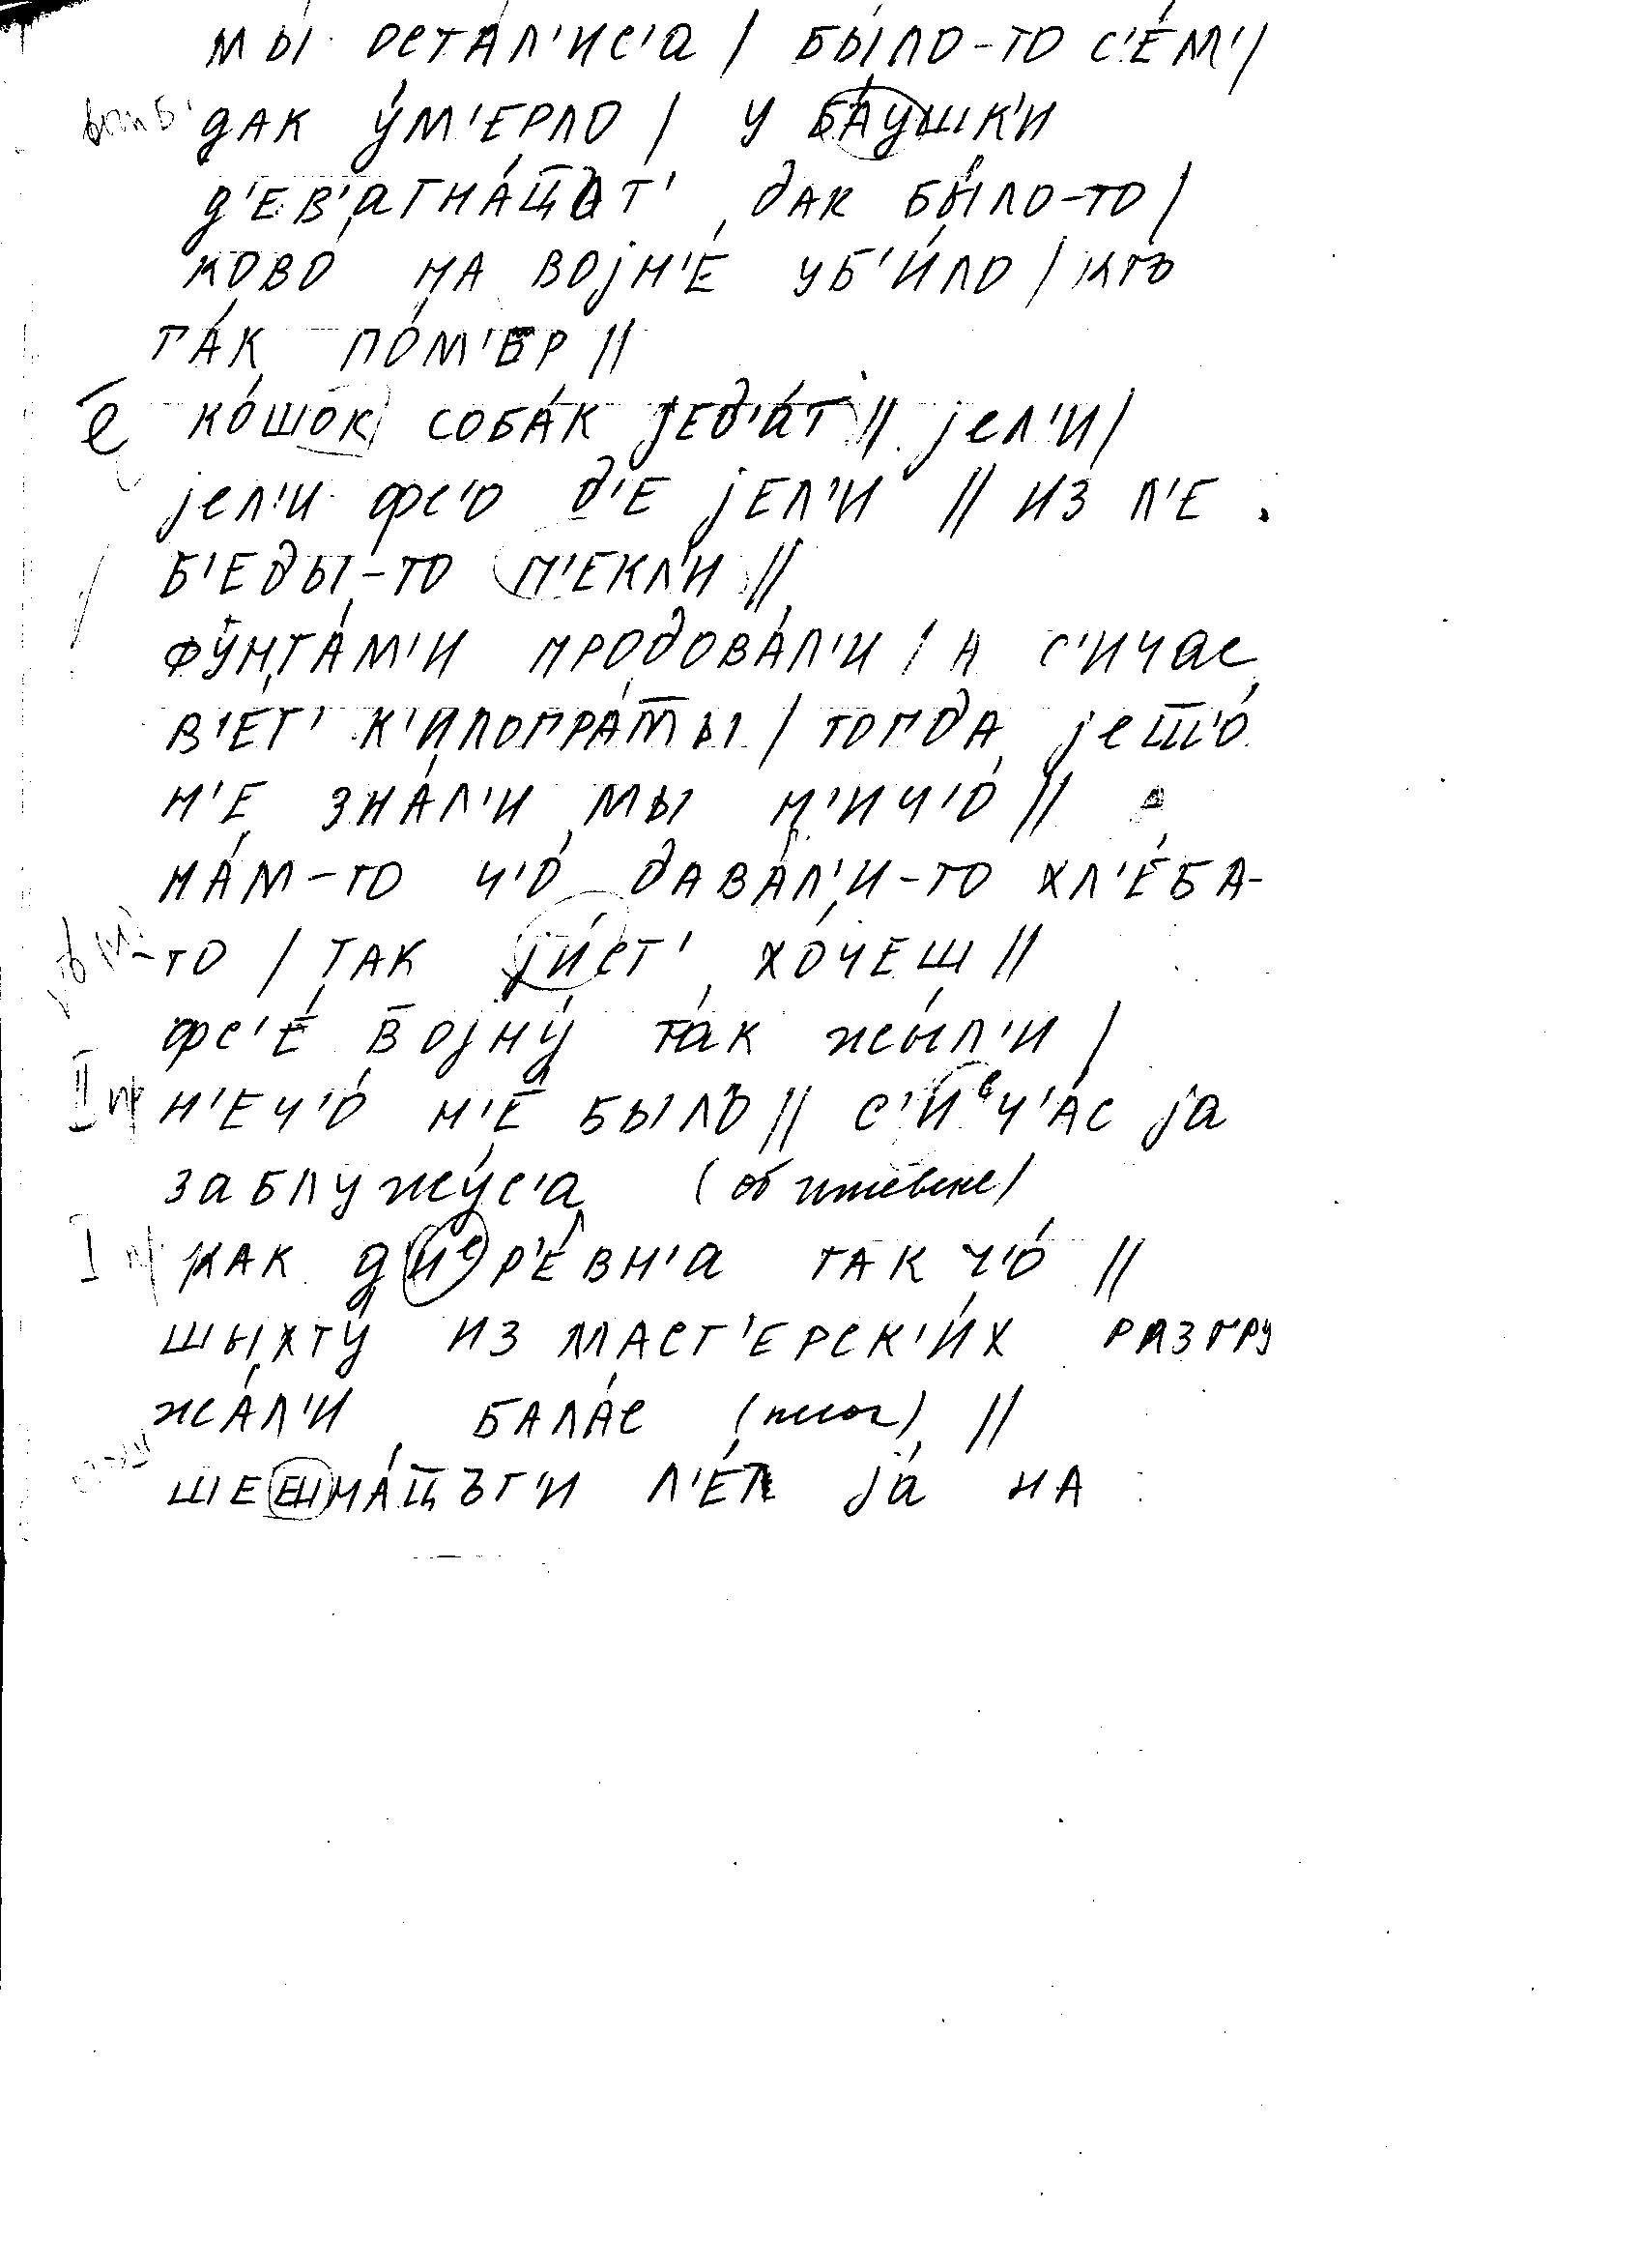 мы́ оста́л'ис'а / бы́ло-то с'е́м' /
дак у́м'ерло / у ба́ушк'и
д'ев'атна́ц̄ат' дак бы́ло-то /
ково́ на војн'е́ уб'и́ло / кто
та́к по́м'ер //
ко́шок соба́к јед'а́т // јел'и /
јел'и фс'о д'е јел'и // из л'е
б'еды-то п'екл'и //
фунта́м'и продова́л'и / а с'ичас
в'е́т' к'илогра́м̄ы / тогда јеш̄'о́
н'е зна́л'и мы н'ич'о́ //
на́м-то ч'о́ дава́л'и-то хл'е́ба-
-то / так ји́ст' хо́чеш //
фс'е́ војну́ та́к жы́л'и /
н'еч'о́ н'е́ былъ // с'иᵉч'а́с ја
заблужу́с'а
как диᵉр'е́вн'а так ч'о́ //
шыхту́ из маст'ерск'и́х разгру
жа́л'и бала́с //
шеешна́ц̄ът'и л'е́т ја́ на